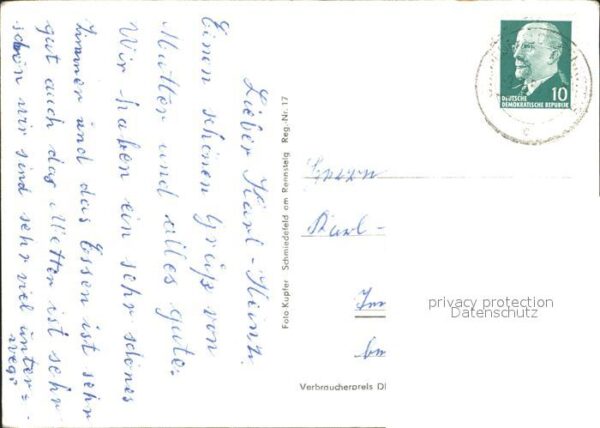 Lieber Karl-Heinz.
Einen schönen Gruß von
Mutter und alles gute.
Wir haben ein sehr schönes
Zimmer und das Essen ist sehr
gut auch das Wetter ist sehr
schön wir sind sehr viel unter=
wegs
Foto Kupfer Schmiedefeld am Rennsteig Reg.-Nr. 17
10
DEUTSCHE
DEMOKRATISCHE REPUBLIK
Herrn
Karl-
privacy protection
Datenschutz
Verbraucherpreis D